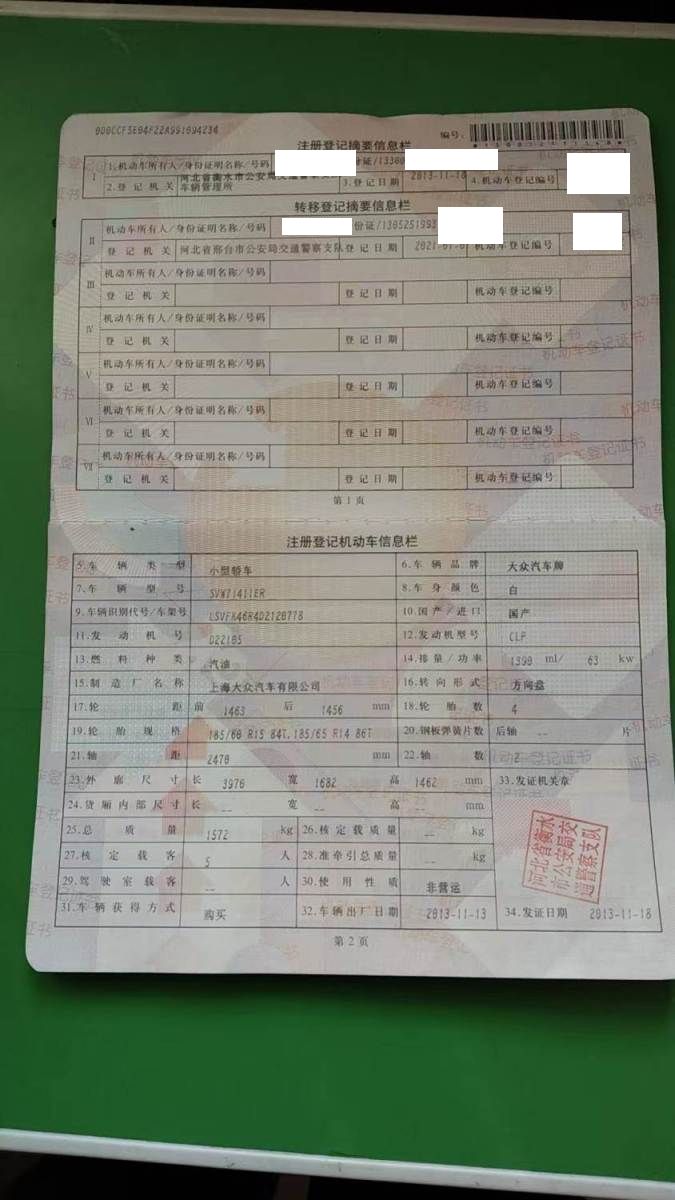 000CCF3E04F22A991694234
编号:
注册登记摘要信息栏
I 1.机动车所有人/身份证明名称/号码 份证/13300
2.登记机关 河北省衡水市公安局交通警察支队车辆管理所 3.登记日期 2013-11-18 4.机动车登记编号
转移登记摘要信息栏
II 机动车所有人/身份证明名称/号码 份证/1305251993
登记机关 河北省邢台市公安局交通警察支队 登记日期 2021-07-0 机动车登记编号
III 机动车所有人/身份证明名称/号码
登记机关 登记日期 机动车登记编号
IV 机动车所有人/身份证明名称/号码
登记机关 登记日期 机动车登记编号
V 机动车所有人/身份证明名称/号码
登记机关 登记日期 机动车登记编号
VI 机动车所有人/身份证明名称/号码
登记机关 登记日期 机动车登记编号
VII 机动车所有人/身份证明名称/号码
登记机关 登记日期 机动车登记编号
第1页
注册登记机动车信息栏
5.车辆类型 小型轿车 6.车辆品牌 大众汽车牌
7.车辆型号 SVW71411ER 8.车身颜色 白
9.车辆识别代号/车架号 LSVFK46R4D2128778 10.国产/进口 国产
11.发动机号 D22185 12.发动机型号 CLP
13.燃料种类 汽油 14.排量/功率 1390 ml/ 63 kw
15.制造厂名称 上海大众汽车有限公司 16.转向形式 方向盘
17.轮距 前 1463 后 1456 mm 18.轮胎数 4
19.轮胎规格 185/60 R15 84T,185/65 R14 86T 20.钢板弹簧片数 后轴 -- 片
21.轴距 2470 mm 22.轴数 2
23.外廓尺寸 长 3976 宽 1682 高 1462 mm 33.发证机关章
24.货厢内部尺寸 长 -- 宽 -- 高 -- mm
25.总质量 1572 kg 26.核定载质量 -- kg
27.核定载客 5 人 28.准牵引总质量 -- kg
河北省衡水
市公安局交
通警察支队
29.驾驶室载客 -- 人 30.使用性质 非营运
31.车辆获得方式 购买 32.车辆出厂日期 2013-11-13 34.发证日期 2013-11-18
第2页